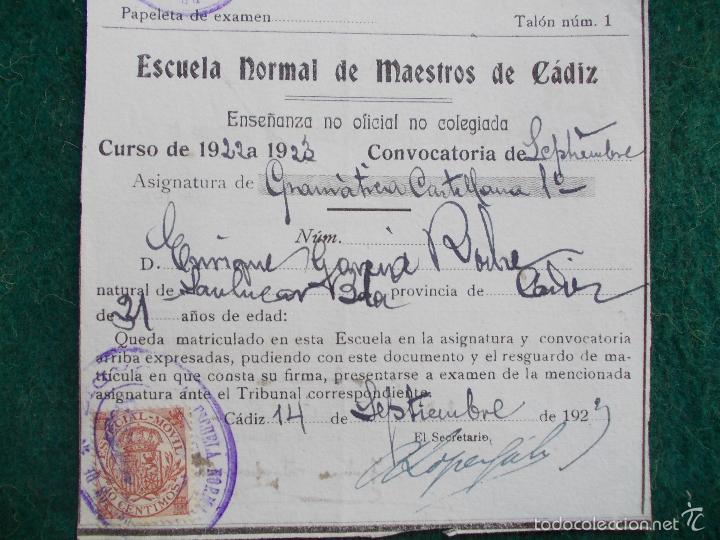 Papeleta de examen
Talón núm. 1
Escuela Normal de Maestros de Cádiz
Enseñanza no oficial no colegiada
Curso de 1922 a 1923 Convocatoria de Septiembre
Asignatura de Gramática Castellana 1º
Núm.
D. Enrique García
natural de Sanlucar Bda provincia de Cádiz
de 31 años de edad:
Queda matriculado en esta Escuela en la asignatura y convocatoria
arriba expresadas, pudiendo con este documento y el resguardo de ma-
trícula en que consta su firma, presentarse a examen de la mencionada
asignatura ante el Tribunal correspondiente.
Cádiz 14 de Septiembre de 1923
El Secretario,
ESPECIAL MOVIL
10 CENTIMOS
ESCUELA NORMAL
todocoleccion.net